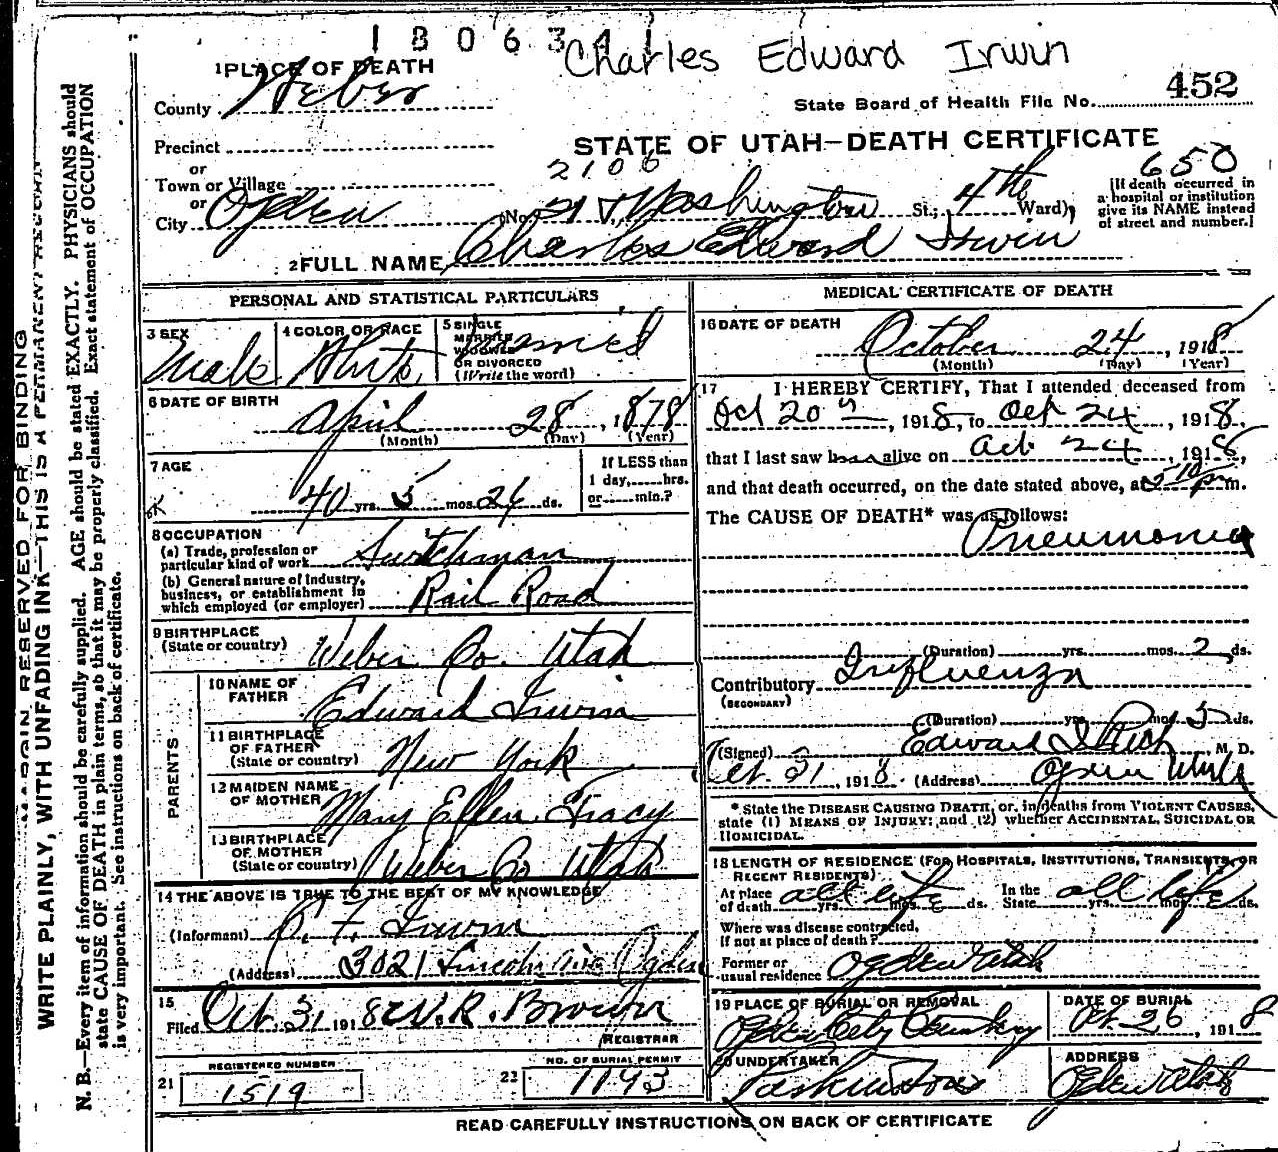 1806341
Charles Edward Irwin
1 PLACE OF DEATH
County Weber
452
State Board of Health File No.
Precinct
STATE OF UTAH—DEATH CERTIFICATE
or
Town or Village
2106
650
or
City Ogden
(No. Washington St.; 4th Ward)
[If death occurred in a hospital or institution give its NAME instead of street and number.]
2 FULL NAME Charles Edward Irwin
PERSONAL AND STATISTICAL PARTICULARS
3 SEX
Male
4 COLOR OR RACE
White
5 SINGLE MARRIED WIDOWED OR DIVORCED (Write the word)
Married
6 DATE OF BIRTH
April 28, 1878
(Month) (Day) (Year)
7 AGE
40 yrs. 5 mos. 26 ds.
If LESS than 1 day,......hrs. or......min.?
8 OCCUPATION
(a) Trade, profession or particular kind of work Switchman
(b) General nature of Industry, business, or establishment in which employed (or employer) Rail Road
9 BIRTHPLACE
(State or country) Weber Co. Utah
PARENTS
10 NAME OF FATHER Edward Irwin
11 BIRTHPLACE OF FATHER (State or country) New York
12 MAIDEN NAME OF MOTHER Mary Ellen Tracy
13 BIRTHPLACE OF MOTHER (State or country) Weber Co Utah
14 THE ABOVE IS TRUE TO THE BEST OF MY KNOWLEDGE
(Informant) R. F. Irwin
(Address) 3021 Lincoln Ave Ogden
15
Filed Oct. 31, 1918 W. R. Brown
REGISTRAR
REGISTERED NUMBER
21 1519
NO. OF BURIAL PERMIT
22 1143
MEDICAL CERTIFICATE OF DEATH
16 DATE OF DEATH
October 24, 1918
(Month) (Day) (Year)
17 I HEREBY CERTIFY, That I attended deceased from
Oct 20, 1918, to Oct 24, 1918,
that I last saw h alive on Oct 24, 1918,
and that death occurred, on the date stated above, at 5 10 p m.
The CAUSE OF DEATH* was as follows:
Pneumonia
(Duration) yrs. mos. 2 ds.
Contributory Influenza
(SECONDARY)
(Duration) yrs. mos. 5 ds.
(Signed) Edward I Rich, M. D.
Oct. 31, 1918. (Address) Ogden Utah
* State the DISEASE CAUSING DEATH, or, in deaths from VIOLENT CAUSES, state (1) MEANS OF INJURY; and (2) whether ACCIDENTAL, SUICIDAL OR HOMICIDAL.
18 LENGTH OF RESIDENCE (FOR HOSPITALS, INSTITUTIONS, TRANSIENTS, OR RECENT RESIDENTS)
At place of death all life yrs. mos. ds. In the State all life yrs. mos. ds.
Where was disease contracted, if not at place of death?
Former or usual residence Ogden Utah
19 PLACE OF BURIAL OR REMOVAL
Ogden City Cemetery
DATE OF BURIAL
Oct. 26, 1918
20 UNDERTAKER
Larkin & Sons
ADDRESS
Ogden Utah
READ CAREFULLY INSTRUCTIONS ON BACK OF CERTIFICATE
MARGIN RESERVED FOR BINDING
WRITE PLAINLY, WITH UNFADING INK—THIS IS A PERMANENT RECORD
N. B.—Every item of information should be carefully supplied. AGE should be stated EXACTLY. PHYSICIANS should
state CAUSE OF DEATH in plain terms, so that it may be properly classified. Exact statement of OCCUPATION
is very important. See instructions on back of certificate.